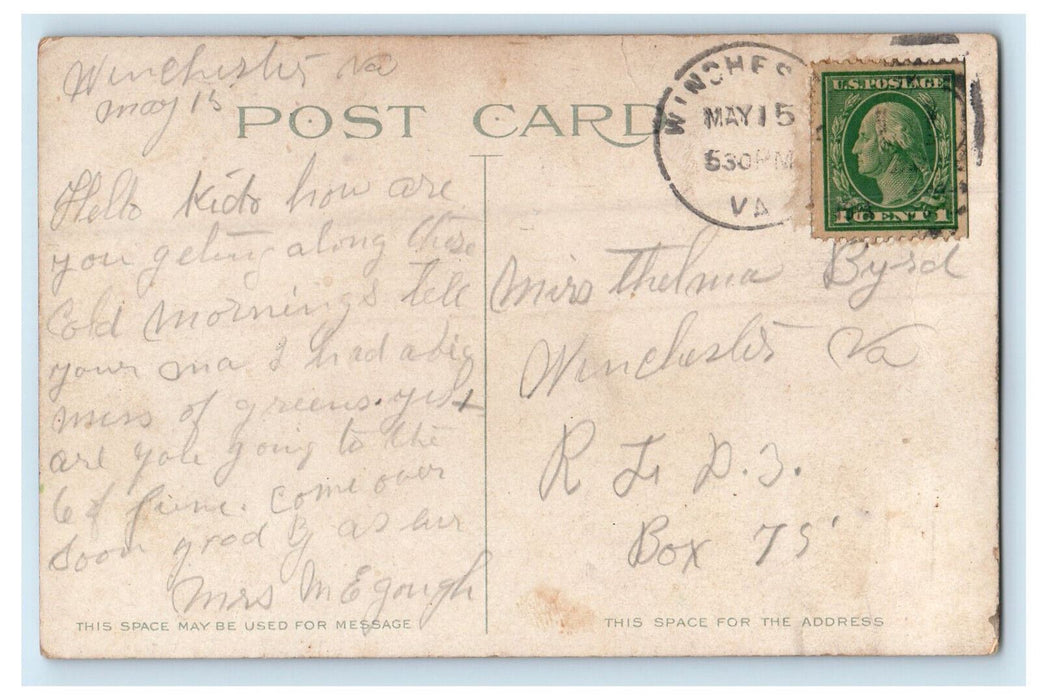 Winchester Va
May 15
POST CARD
WINCHES
MAY 15
530 PM
VA
U.S. POSTAGE
1 CENT 1
Hello kids how are
you geting along these
Cold mornings tell
your ma I had a big
mess of greens yest
are you going to the
6 of June. come over
soon good By as ever
Mrs M E gough
Miss Thelma Byrd
Winchester Va
R F D. 3.
Box 75
THIS SPACE MAY BE USED FOR MESSAGE
THIS SPACE FOR THE ADDRESS